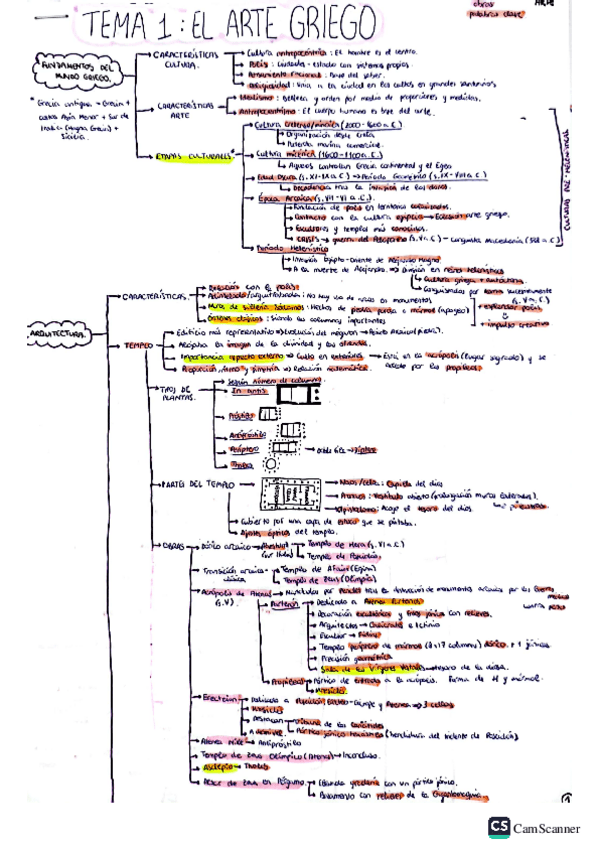 obras
ARTE
palabras clave
TEMA 1: EL ARTE GRIEGO
FUNDAMENTOS DEL
MUNDO GRIEGO.
* Grecia antigua = Grecia +
costas Asia Menor + Sur de
Italia (Magna Grecia) +
Sicilia.
CARACTERÍSTICAS
CULTURA.
Cultura antropocéntrica: El hombre es el centro.
Polis: ciudades-estado con sistemas propios.
Pensamiento racional: Base del saber.
Religiosidad: unía a la ciudad en los cultos en grandes santuarios
CARACTERÍSTICAS
ARTE
Idealismo: Belleza y orden por medio de proporciones y medidas.
Antropocentrismo: El cuerpo humano es base del arte.
ETAPAS CULTURALES*
Cultura cretense/minoica (2000-1600 a.C.)
Organización desde Creta
Potencia marina comercial.
Cultura micénica (1600-1100 a.C.)
Aqueos controlan Grecia continental y el Egeo
Edad Oscura (s. XI-IX a.C.) → Periodo Geométrico (s. IX-VIII a.C.)
Decadencia tras la invasión de los dorios.
Época Arcaica (s. VII-VI a.C.)
Fundación de polis en territorios colonizados.
Contacto con la cultura egipcia → Eclosión arte griego.
Esculturas y templos más conocidos.
CRISIS → guerra del Peloponeso (s. V a.C.) - conquista Macedonia (338 a.C.)
Periodo Helenístico
Invasión Egipto-Oriente de Alejandro Magno.
A la muerte de Alejandro → División en reinos helenísticos
Cultura griega + autóctona
Conquistados por Roma sucesivamente
CULTURAS PRE-HELÉNICAS
ARQUITECTURA
CARACTERÍSTICAS.
Relación con la polis.
Adintelada/arquitrabada: No hay uso de arcos en monumentos
Muros de sillería isódomos: Hechos de piedra, pardo o mármol
Órdenes clásicos: Siendo las columnas importantes
+ esplendor polis
+ impulso creativo
TEMPLO
Edificio más representativo → Evolución del mégaron → Reino
Acogían la imagen de la divinidad y las ofrendas.
Importancia aspecto externo → Culto en exteriores → Está en la acrópolis (lugar sagrado) y se
accede por los propileos.
Proporción, ritmo y simetría → Relación matemática.
TIPOS DE
PLANTAS.
Según número de columnas
In antis
Próstilo
Anfipróstilo
Períptero
doble fila → díptero
Tholos
PARTES DEL TEMPLO
Naos/cella: Capilla del dios
Pronaos: Vestíbulo abierto (prolongación muros exteriores).
Opistodomo: Acoge el tesoro del dios.
Cubierto por una capa de estuco que se pintaba.
Ajustes ópticos del templo.
OBRAS
Dórico arcaico
Paestum
Templo de Hera (s. VI a.C.)
Templo de Poseidón.
Transición arcaica-
clásica
Templo de Afaia (Egina)
Templo de Zeus (Olimpia)
Acrópolis de Atenas
(s. V).
Reconstruida por Pericles tras la destrucción de monumentos arcaicos por las Guerras
Partenón
Dedicado a Atenea Partenos
Decoración escultórica y friso jónico con relieves.
Arquitectos → Calícrates e Ictino
Escultor → Fidias
Templo períptero de mármol (8×17 columnas) dórico. + 4 jónicas.
Precisión geométrica
Sala de las Vírgenes Vestales → tesoro de la diosa.
Propileos
Pórtico de entrada a la acrópolis. Forma de H y mármol.
Mnesicles
Erecteion
Dedicado a Poseidón, Erecteo-Cécrope y Atenea → 3 cellas
Mnesicles
Destacan → tribuna de las cariátides
Pórtico jónico hexástilo (hendidura del tridente de Poseidón)
Atenea Niké → Anfipróstilo
Templo de Zeus Olímpico (Atenas) → Inconcluso.
Asclepio → Tholos
Altar de Zeus en Pérgamo.
Grande gradería con un pórtico jónico.
Basamento con relieves de la Gigantomaquia.
1
CS CamScanner